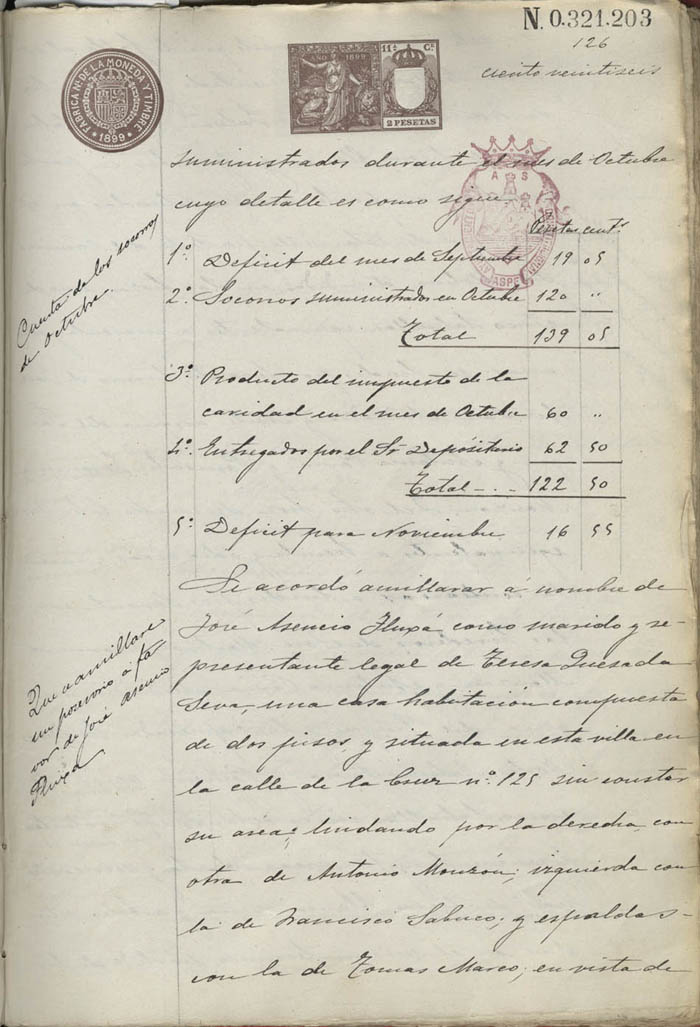 N. 0.321.203
126
ciento veintiseis
FABRICA Nal. DE LA MONEDA Y TIMBRE
* 1899 *
AÑO 1899
11ª Cª.
2 PESETAS
A S
ASPE
suministrados durante el mes de Octubre
cuyo detalle es como sigue
Pesetas cents
Cuenta de los socorros
de Octubre.
1º Deficit del mes de Septiembre 19 05
2º Socorros suministrados en Octubre 120 "
Total 139 05
3º Producto del impuesto de la
caridad en el mes de Octubre 60 "
4º Entregados por el Sr Depósitario 62 50
Total - . - 122 50
5º Deficit para Noviembre 16 55
Que se amillare
un posesorio a fa
vor de José Asencio
Fluxá
Se acordó amillarar á nombre de
José Asencio Fluxá como marido y re-
presentante legal de Teresa Quesada
Seva, una casa habitación compuesta
de dos pisos y situada en esta villa en
la calle de la Cruz nº. 125 sin constar
su area; lindando por la derecha, con
otra de Antonio Monzón; izquierda con
la de Francisco Sabuco; y espaldas-
con la de Tomas Marco; en vista de